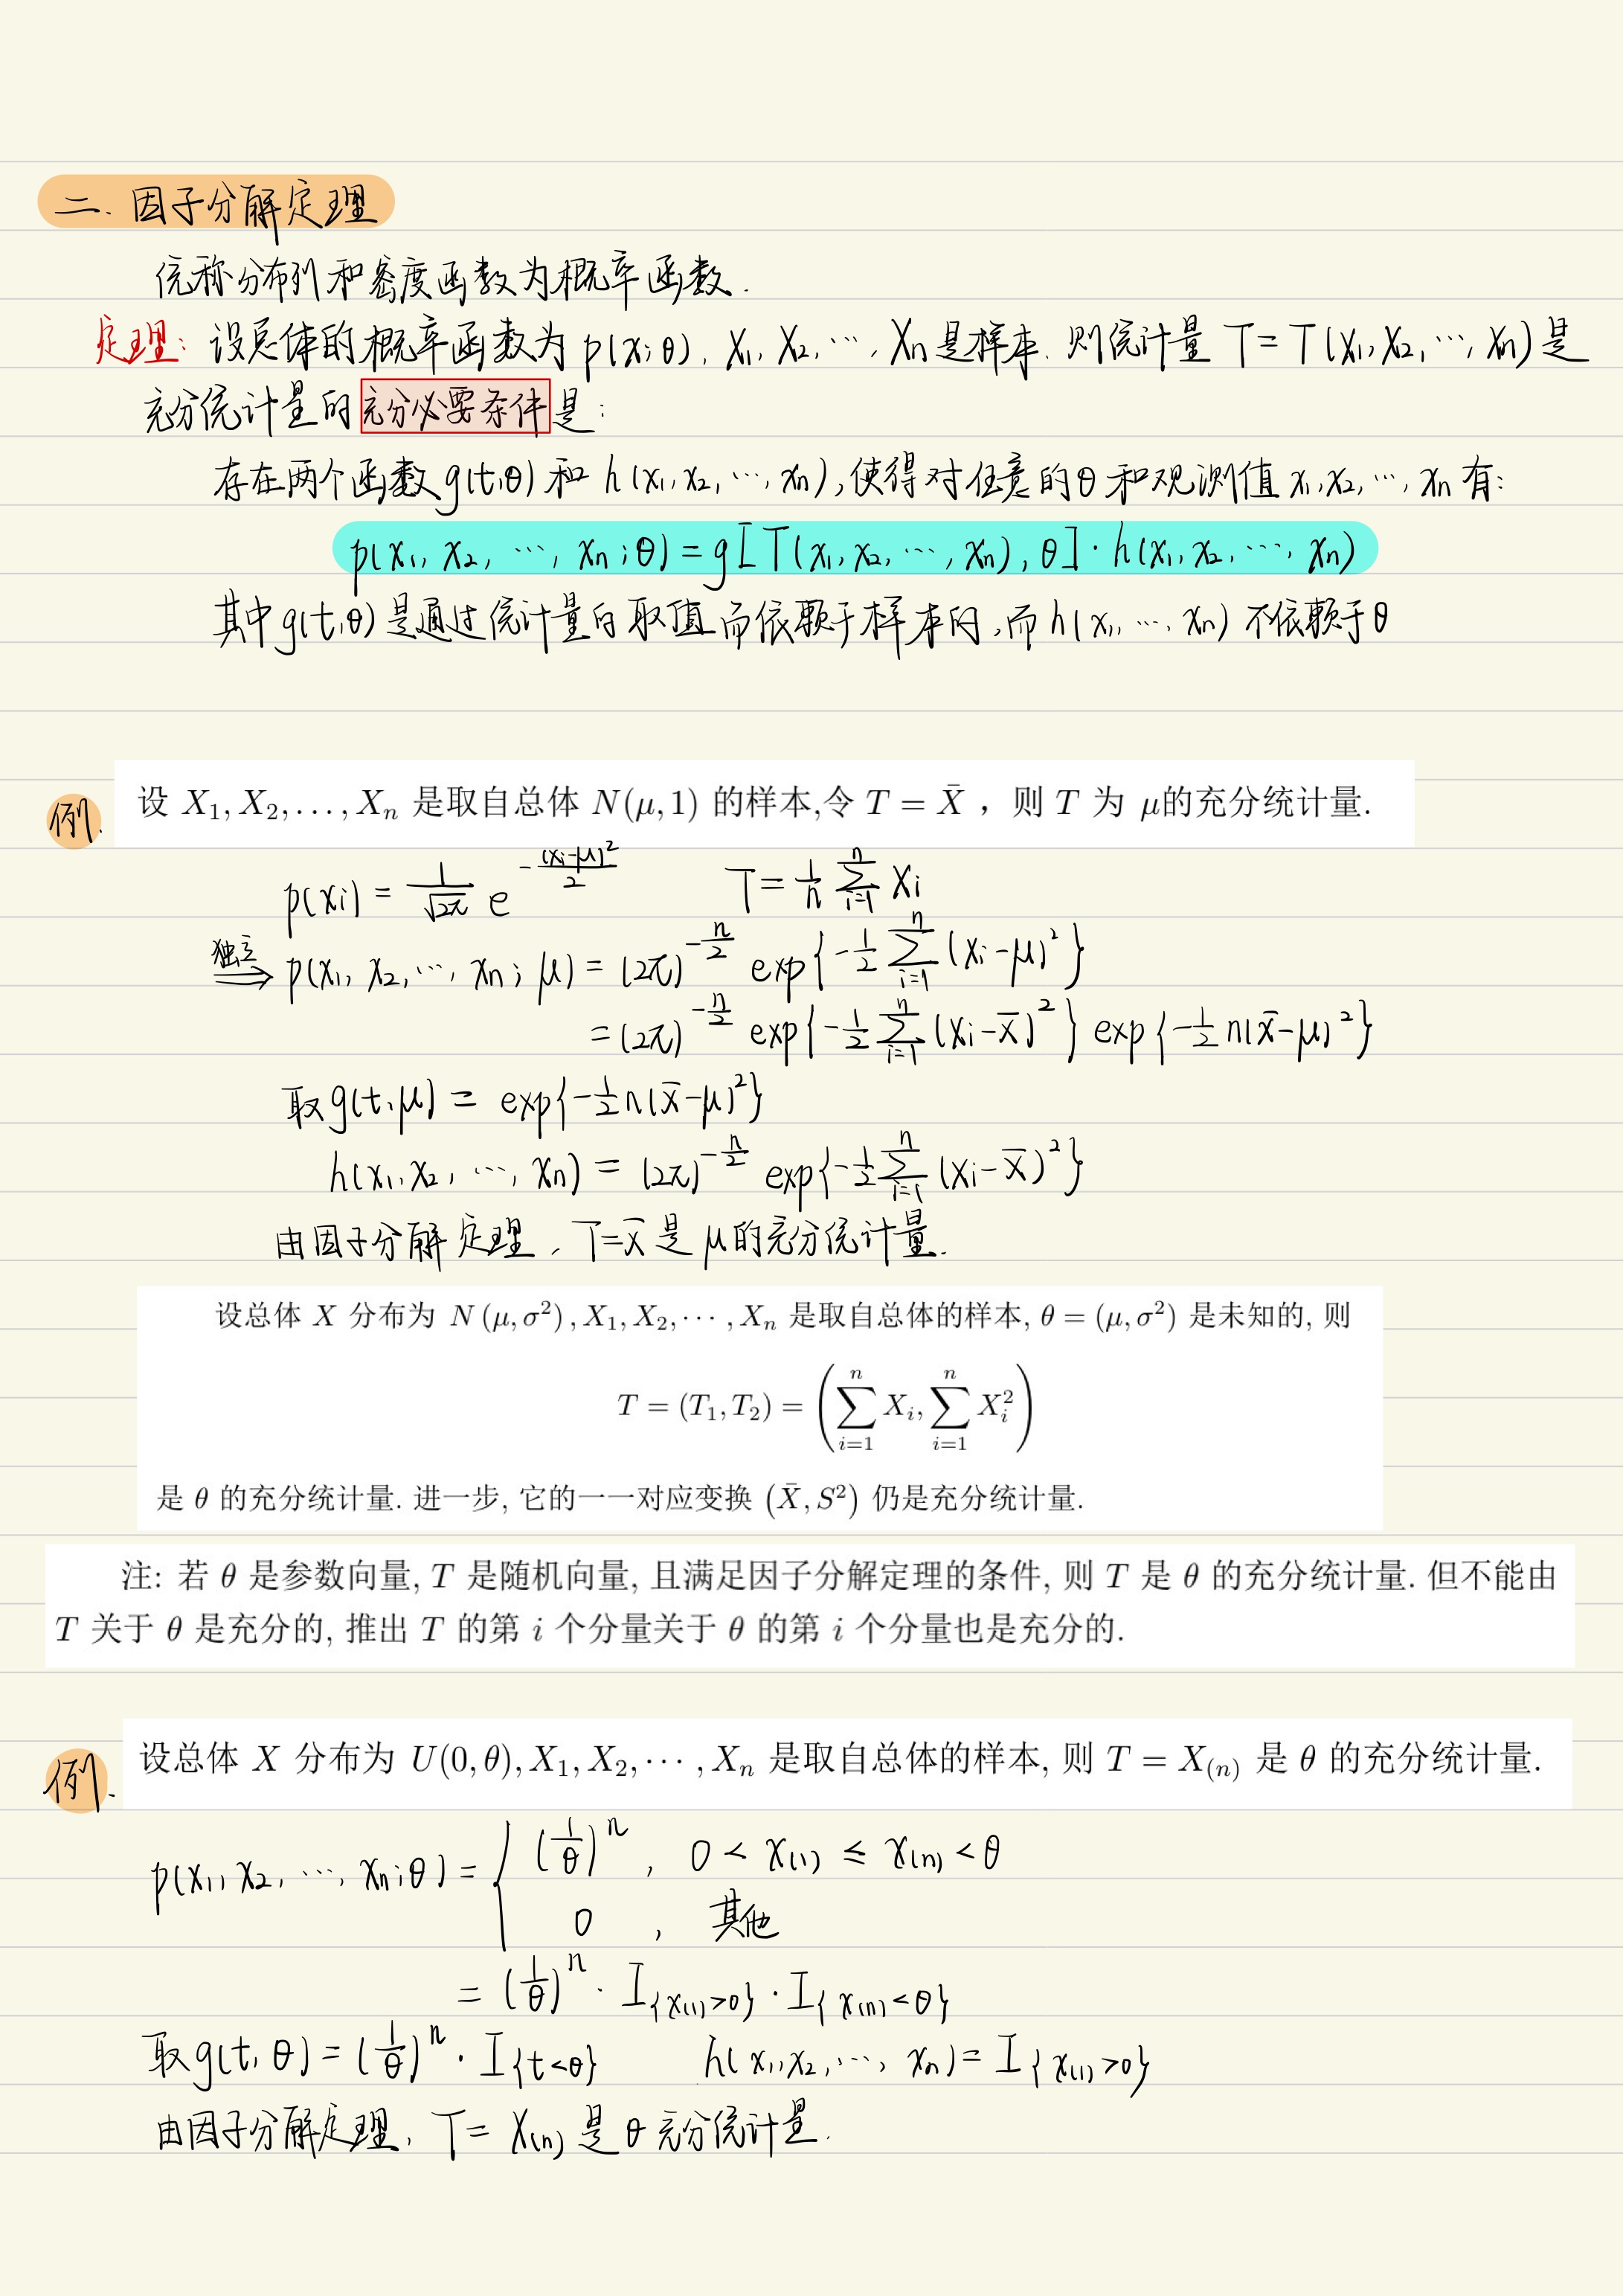 二. 因子分解定理
统称分布列和密度函数为概率函数.
定理: 设总体的概率函数为 p(x;θ), X₁, X₂, ⋯, Xn 是样本. 则统计量 T = T(X₁, X₂, ⋯, Xn) 是
充分统计量的充分必要条件是:
存在两个函数 g(t,θ) 和 h(x₁, x₂, ⋯, xn), 使得对任意的θ和观测值 x₁, x₂, ⋯, xn 有:
p(x₁, x₂, ⋯, xn; θ) = g[T(x₁, x₂, ⋯, xn), θ] · h(x₁, x₂, ⋯, xn)
其中 g(t,θ) 是通过统计量的取值而依赖于样本的, 而 h(x₁, ⋯, xn) 不依赖于θ
例. 设 X₁, X₂, . . . , Xₙ 是取自总体 N(μ, 1) 的样本,令 T = X̄ ，则 T 为 μ的充分统计量.
p(xi) = 1/√2π e^{-(xi-μ)²/2} T = 1/n ∑_{i=1}^{n} Xi
独立⟹ p(x₁, x₂, ⋯, xn; μ) = (2π)^{-n/2} exp{-1/2 ∑_{i=1}^{n} (xi-μ)²}
= (2π)^{-n/2} exp{-1/2 ∑_{i=1}^{n} (xi-x̄)²} exp{-1/2 n(x̄-μ)²}
取 g(t,μ) = exp{-1/2 n(x̄-μ)²}
h(x₁, x₂, ⋯, xn) = (2π)^{-n/2} exp{-1/2 ∑_{i=1}^{n} (xi-x̄)²}
由因子分解定理, T=x̄ 是 μ的充分统计量.
设总体 X 分布为 N (μ, σ²) , X₁, X₂, ⋯ , Xₙ 是取自总体的样本, θ = (μ, σ²) 是未知的, 则
T = (T₁, T₂) = (∑_{i=1}^{n} Xᵢ, ∑_{i=1}^{n} Xᵢ²)
是 θ 的充分统计量. 进一步, 它的一一对应变换 (X̄, S²) 仍是充分统计量.
注: 若 θ 是参数向量, T 是随机向量, 且满足因子分解定理的条件, 则 T 是 θ 的充分统计量. 但不能由
T 关于 θ 是充分的, 推出 T 的第 i 个分量关于 θ 的第 i 个分量也是充分的.
例. 设总体 X 分布为 U(0, θ), X₁, X₂, ⋯ , Xₙ 是取自总体的样本, 则 T = X₍ₙ₎ 是 θ 的充分统计量.
p(x₁, x₂, ⋯, xn; θ) = { (1/θ)^n , 0 < x₍₁₎ ≤ x₍ₙ₎ < θ
0 , 其他
= (1/θ)^n · I_{x₍₁₎>0} · I_{x₍ₙ₎<θ}
取 g(t, θ) = (1/θ)^n · I_{t<θ} h(x₁, x₂, ⋯, xn) = I_{x₍₁₎>0}
由因子分解定理, T = X₍ₙ₎ 是θ充分统计量.